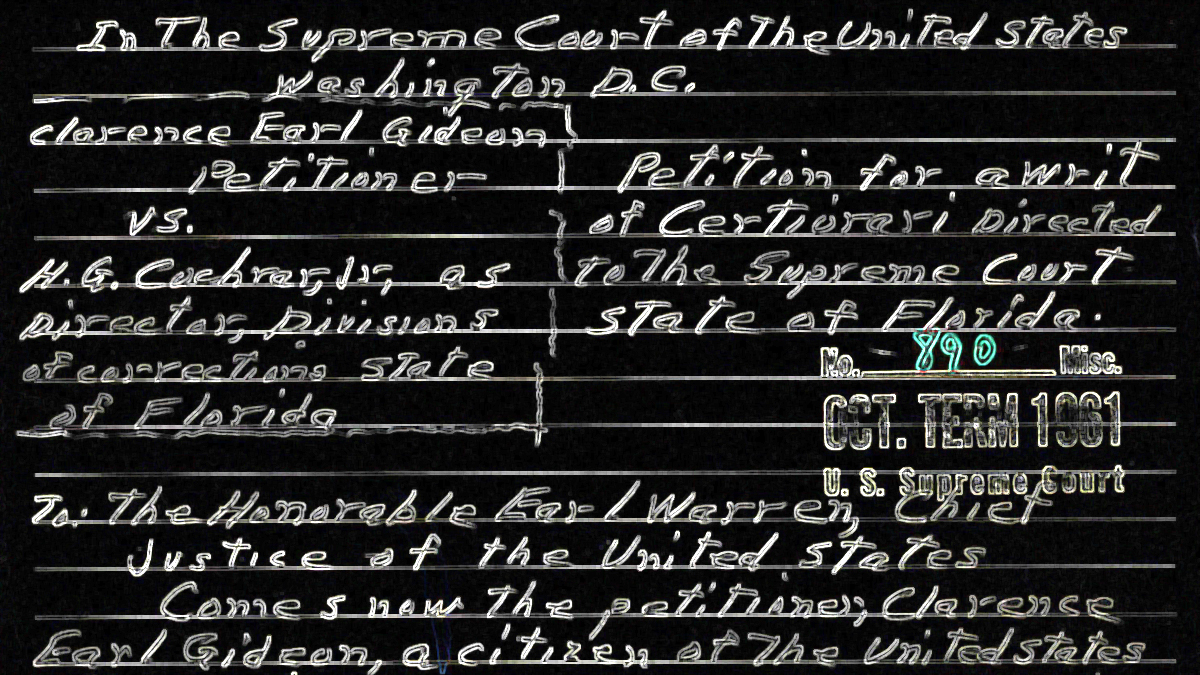 In The Supreme Court of The United States
Washington D.C.
Clarence Earl Gideon
Petitioner
vs.
H.G. Cochran, Jr., as
Director, Divisions
of corrections state
of Florida
Petition for a writ
of Certiorari Directed
to The Supreme Court
State of Florida.
No. 890 Misc.
OCT. TERM 1961
U. S. Supreme Court
To: The Honorable Earl Warren, Chief
Justice of the United States
Comes now the petitioner, Clarence
Earl Gideon, a citizen of The United states